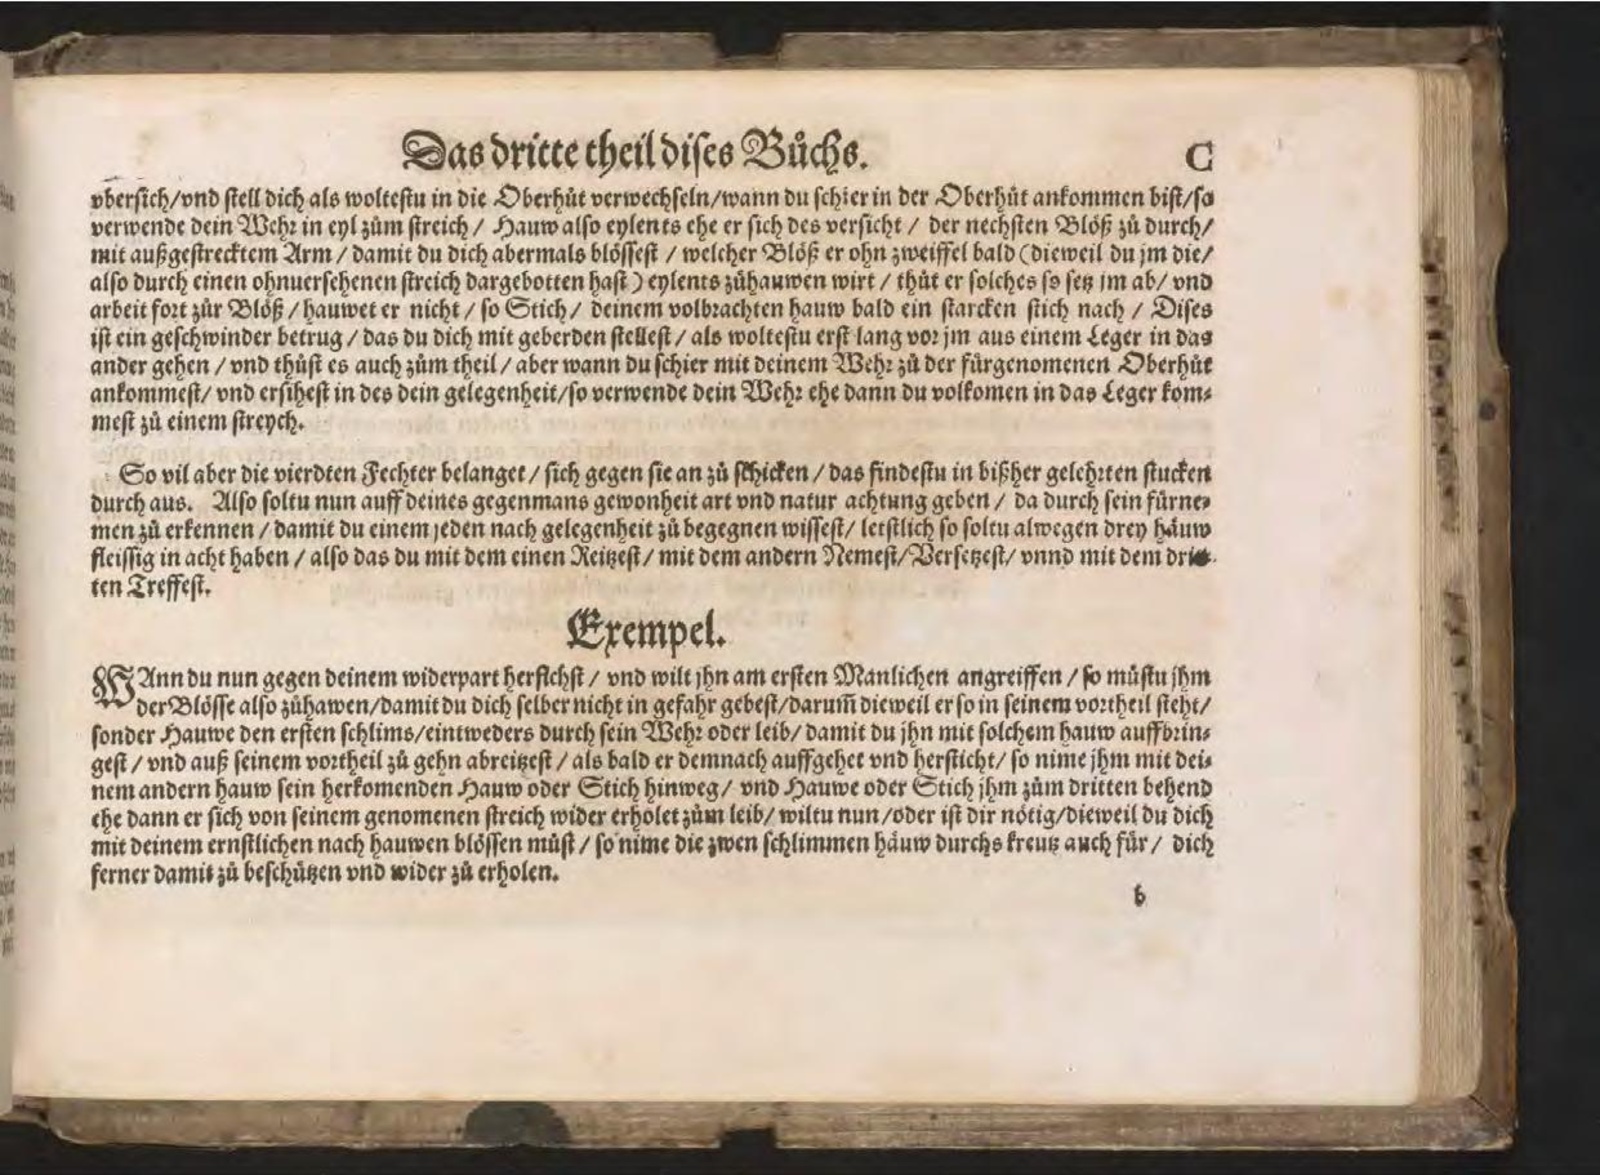 Das dritte theil dises Bůchs. C
vbersich/vnd stell dich als woltestu in die Oberhůt verwechseln/wann du schier in der Oberhůt ankommen bist/so
verwende dein Wehr in eyl zům streich / Hauw also eylents ehe er sich des versicht / der nechsten Blöß zů durch/
mit außgestrecktem Arm / damit du dich abermals blössest / welcher Blöß er ohn zweiffel bald (dieweil du jm die/
also durch einen ohnuersehenen streich dargebotten hast) eylents zůhauwen wirt / thůt er solches so setz jm ab/ vnd
arbeit fort zůr Blöß / hauwet er nicht / so Stich / deinem volbrachten hauw bald ein starcken stich nach / Dises
ist ein geschwinder betrug / das du dich mit geberden stellest / als woltestu erst lang vor jm aus einem Leger in das
ander gehen / vnd thůst es auch zům theil / aber wann du schier mit deinem Wehr zů der fürgenomenen Oberhůt
ankommest/ vnd ersihest in des dein gelegenheit/so verwende dein Wehr ehe dann du volkomen in das Leger kom⸗
mest zů einem streych.
So vil aber die vierdten Fechter belanget / sich gegen sie an zů schicken / das findestu in bißher gelehrten stucken
durch aus. Also soltu nun auff deines gegenmans gewonheit art vnd natur achtung geben / da durch sein fürne⸗
men zů erkennen / damit du einem jeden nach gelegenheit zů begegnen wissest/ letstlich so soltu alwegen drey häuw
fleissig in acht haben / also das du mit dem einen Reitzest/ mit dem andern Nemest/Versetzest/ vnnd mit dem drit⸗
ten Treffest.
Exempel.
WAnn du nun gegen deinem widerpart herstchst / vnd wilt jhn am ersten Manlichen angreiffen / so můstu jhm
der Blösse also zůhawen/damit du dich selber nicht in gefahr gebest/darum̃ dieweil er so in seinem vortheil steht/
sonder Hauwe den ersten schlims/eintweders durch sein Wehr oder leib/ damit du jhn mit solchem hauw auffbrin⸗
gest / vnd auß seinem vortheil zů gehn abreitzest / als bald er demnach auffgehet vnd hersticht/ so nime jhm mit dei⸗
nem andern hauw sein herkomenden Hauw oder Stich hinweg/ vnd Hauwe oder Stich jhm zům dritten behend
ehe dann er sich von seinem genomenen streich wider erholet zům leib/ wiltu nun /oder ist dir nötig/dieweil du dich
mit deinem ernstlichen nach hauwen blössen můst / so nime die zwen schlimmen häuw durchs kreutz auch für / dich
ferner damit zů beschützen vnd wider zů erholen.
b